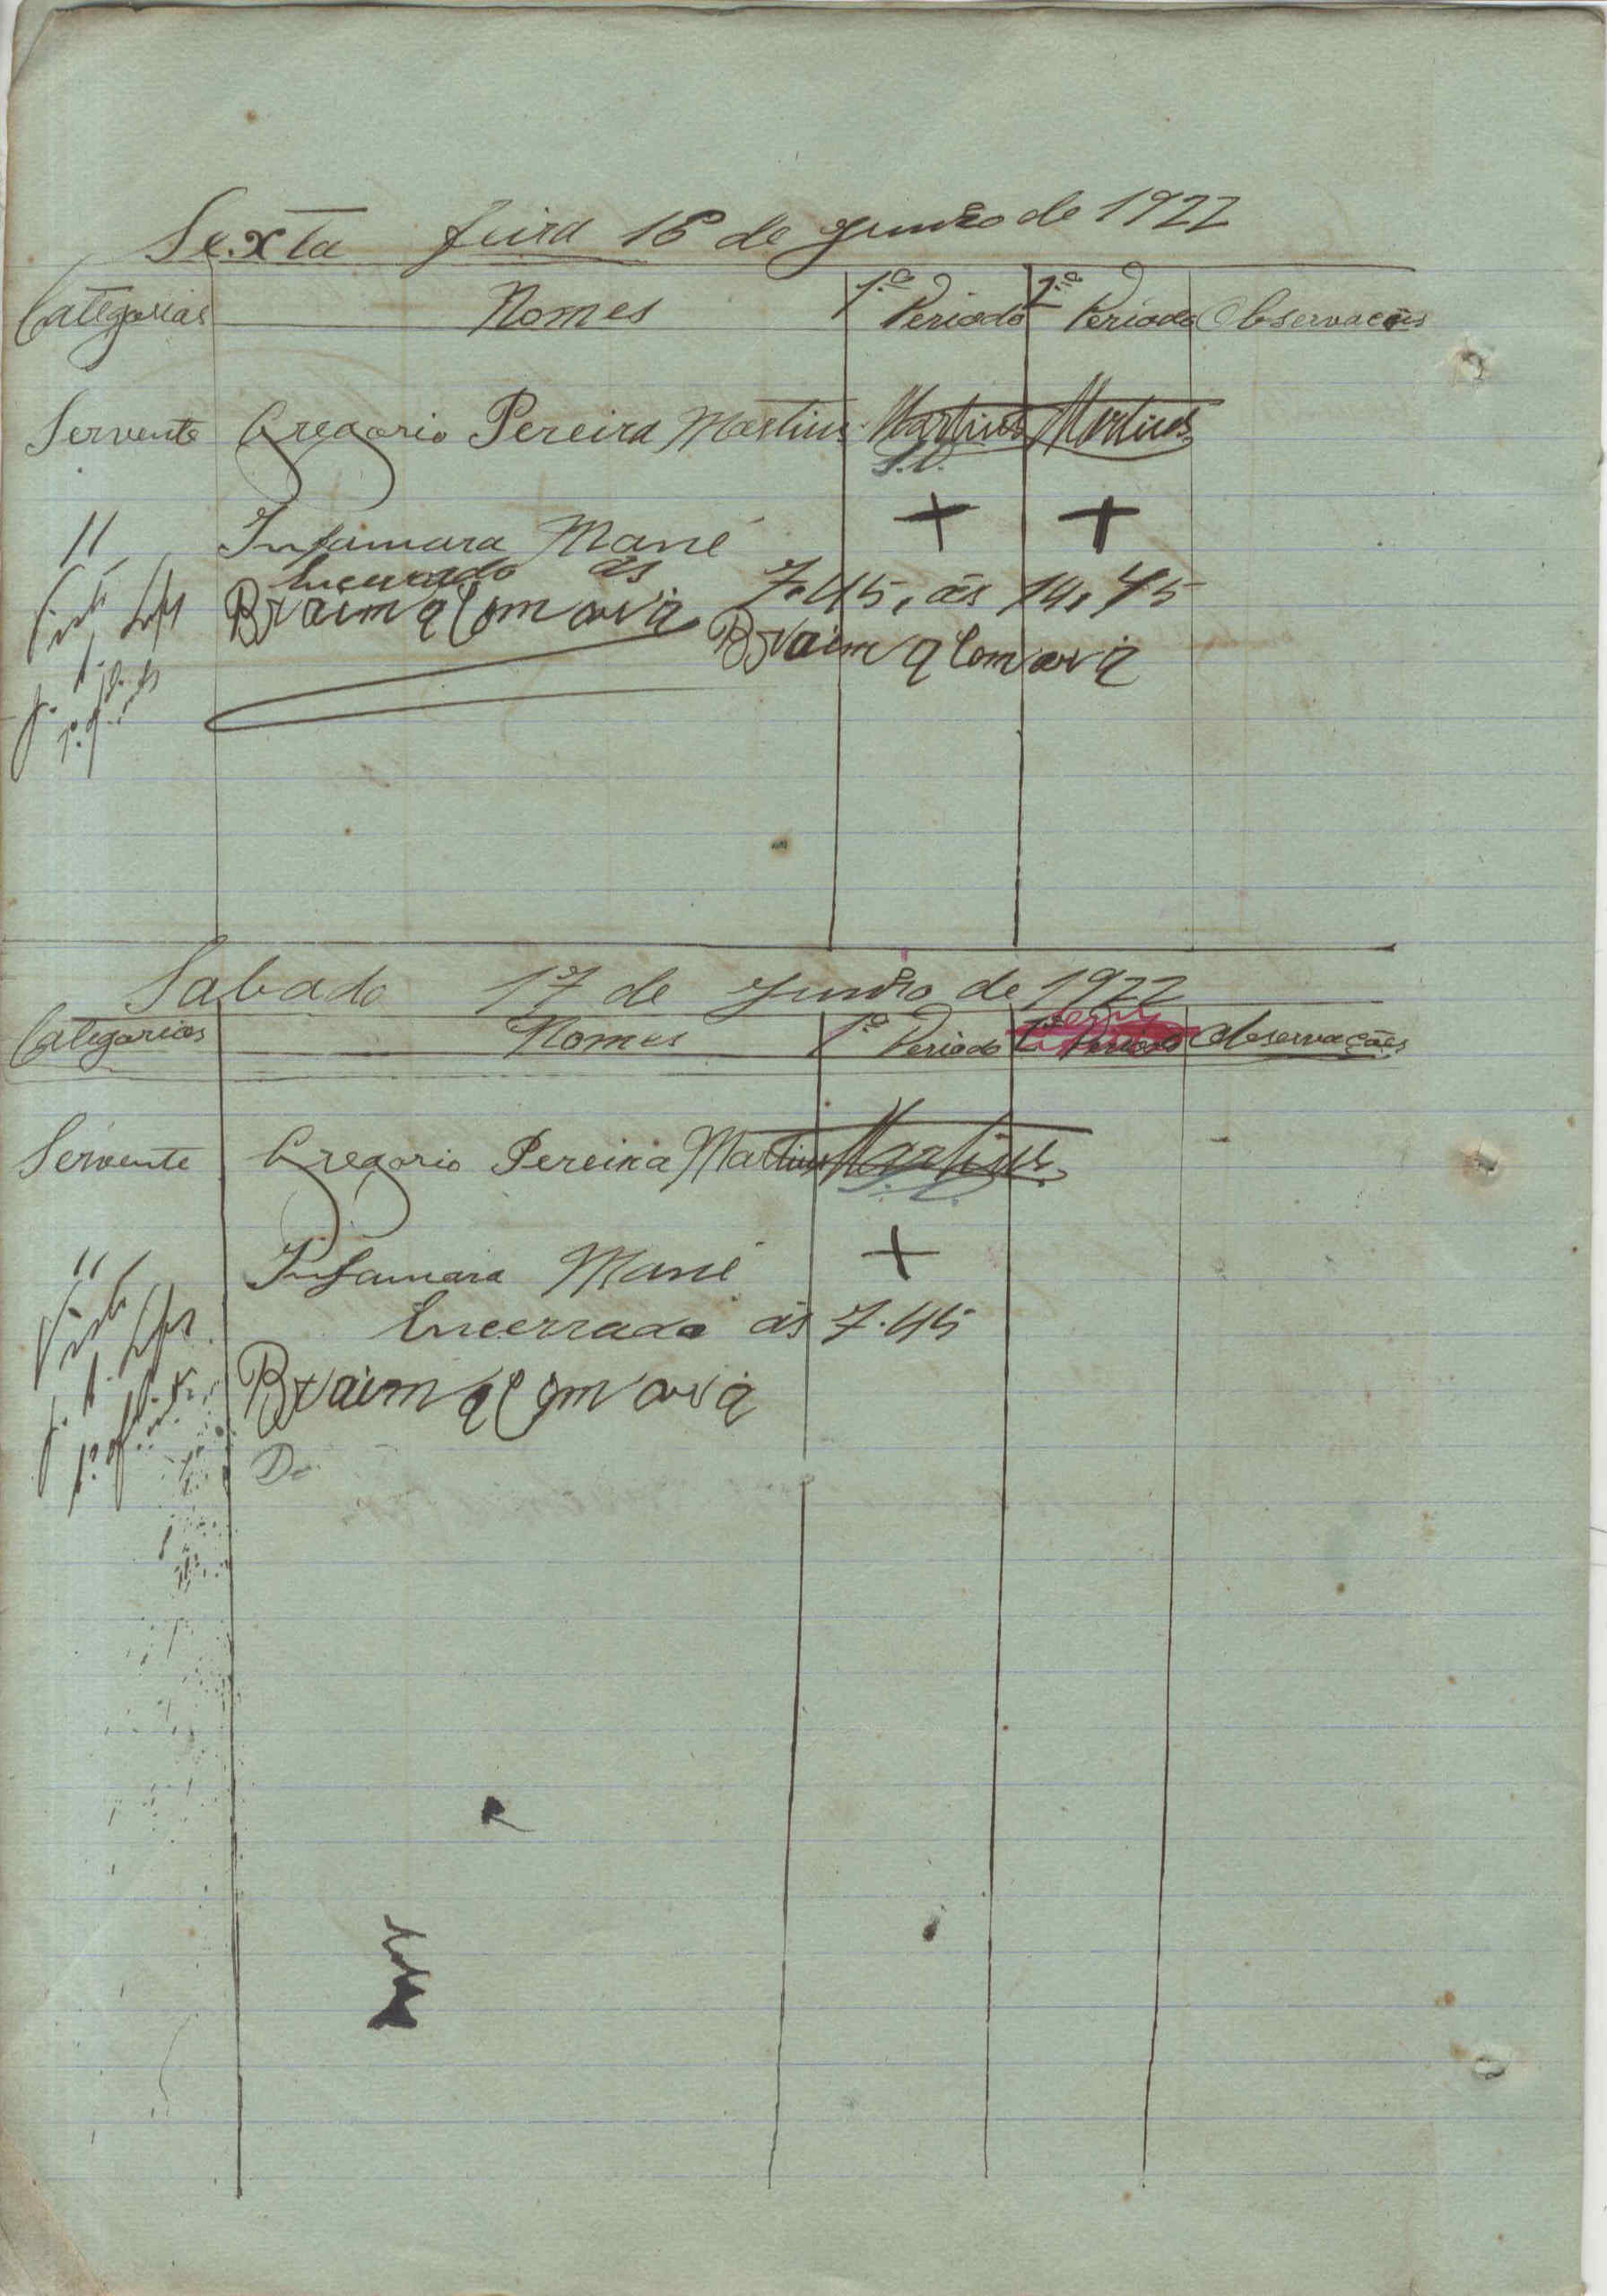 Sexta feira 16 de Junho de 1922
Categorias Nomes 1.º Periodo 2.º Periodo Observações
Servente Gregorio Pereira Martins Martins Martins
" Infamara Mané + +
Encerrado ás 7.45, ás 14,45
Braima Comará
Braima Comará
Sabado 17 de Junho de 1922
Categorias Nomes 1.º Periodo 2.º Periodo Observações
Servente Gregorio Pereira Martins Martins
" Infamara Mané +
Encerrado ás 7.45
Braima Comará
De